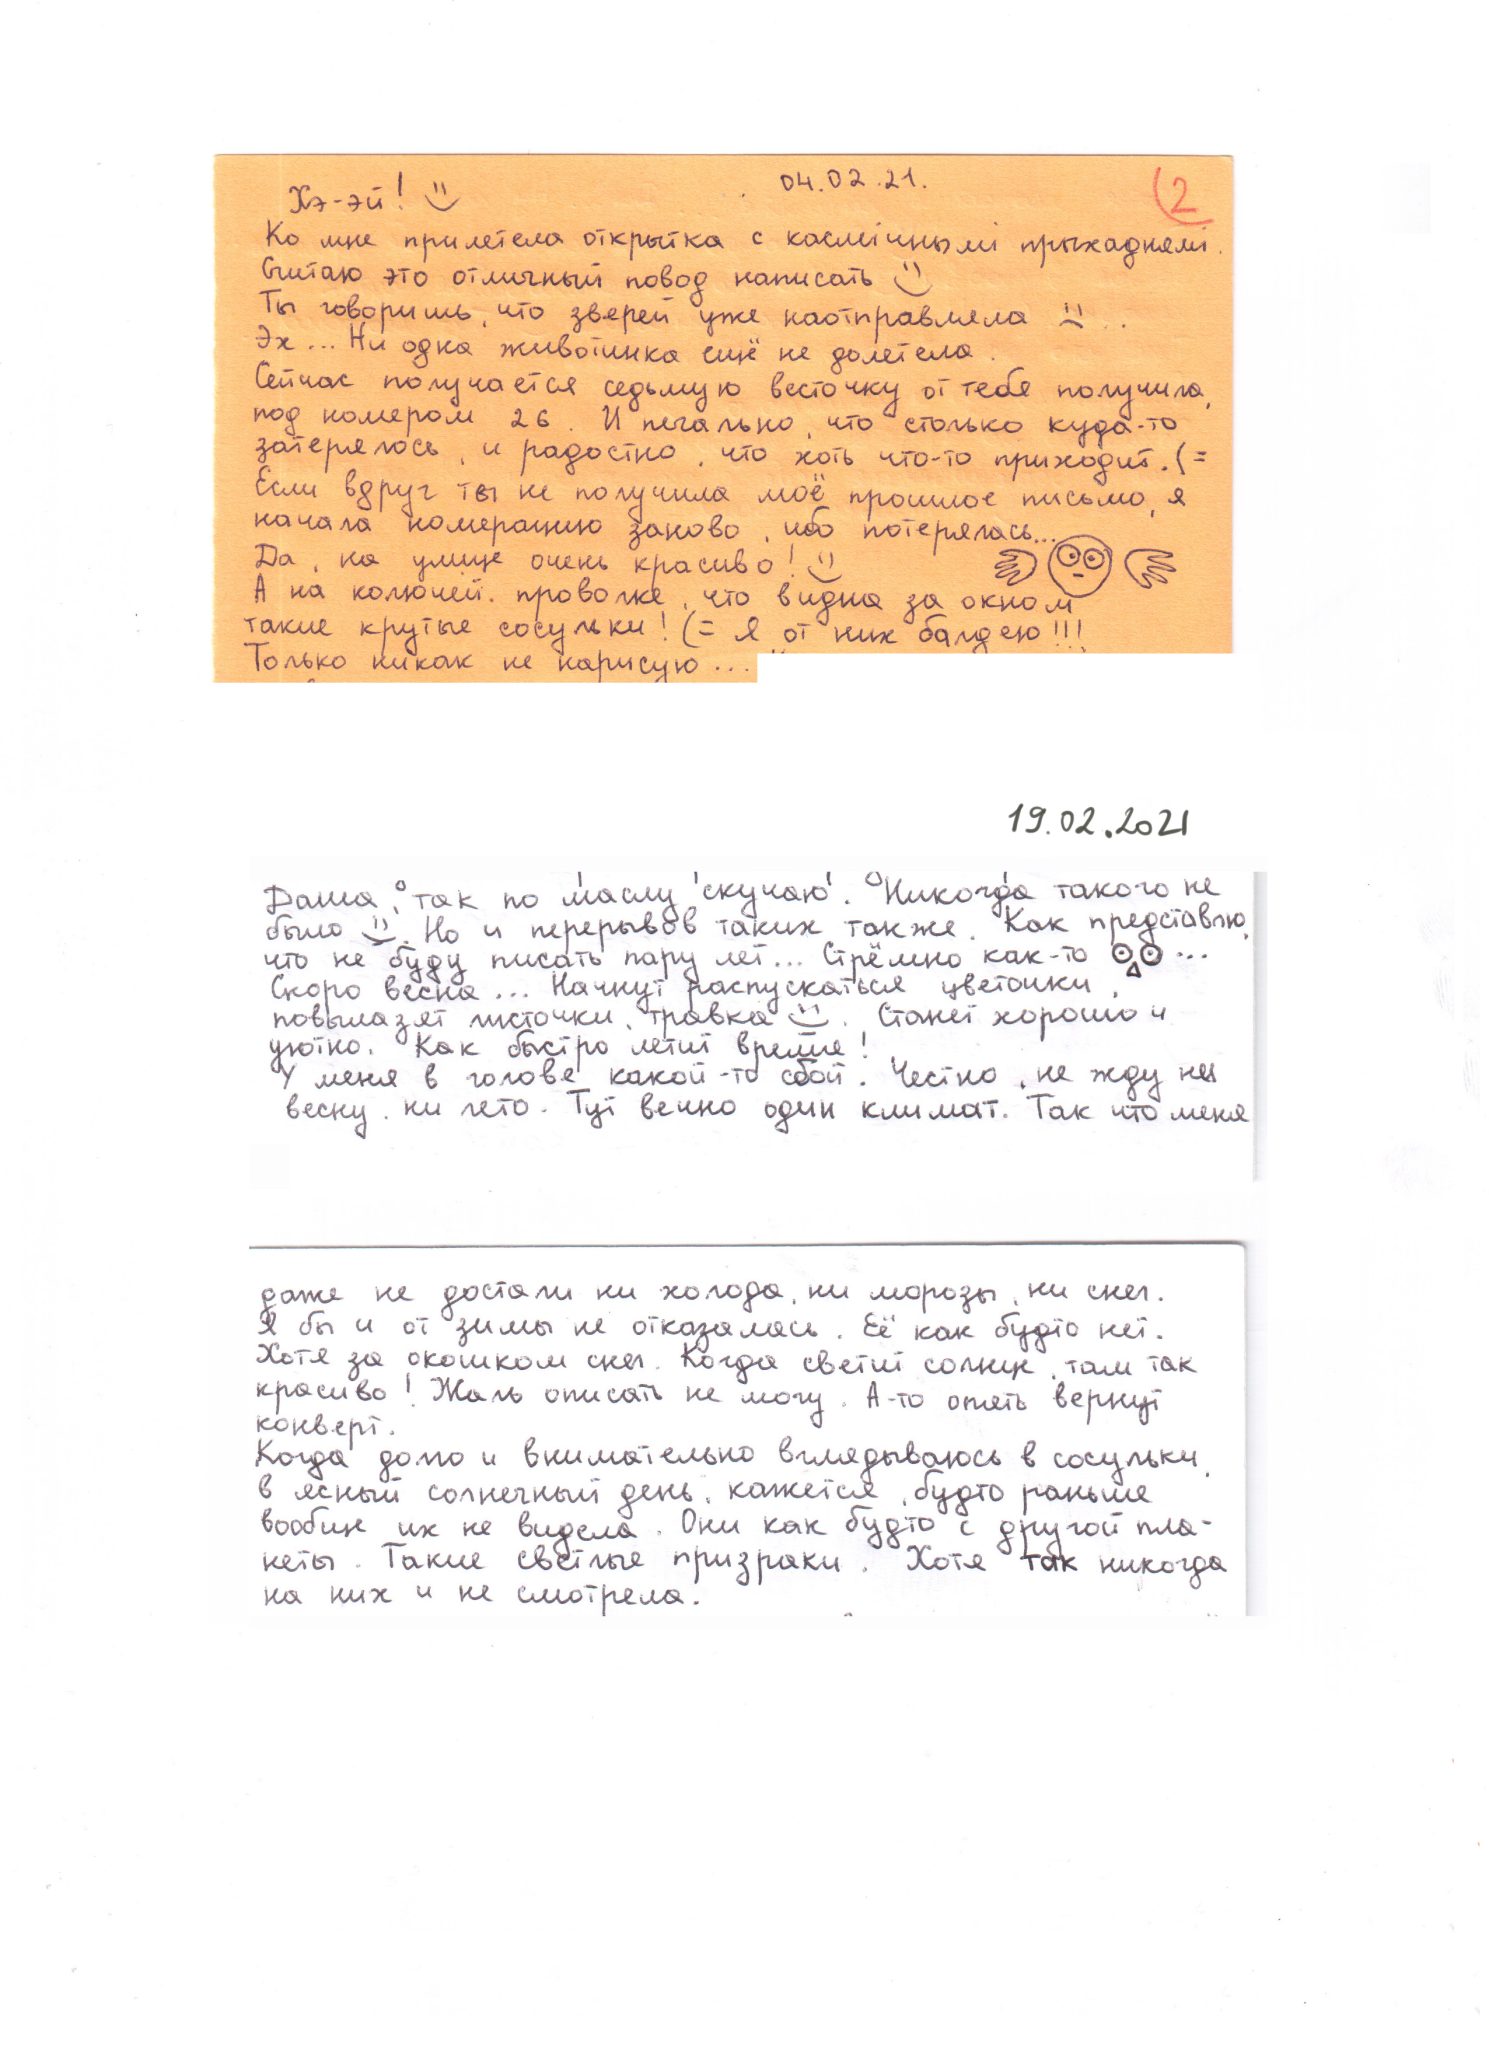 04.02.21.
2
Хэ-эй!
Ко мне прилетела открытка с касмічнымі прыхаднямі.
Считаю это отличный повод написать
Ты говоришь, что зверей уже наотправляла ...
Эх... Ни одна животинка ещё не долетела.
Сейчас получается седьмую весточку от тебя получила,
под номером 26. И печально, что столько куда-то
затерялось, и радостно, что хоть что-то приходит. (=
Если вдруг ты не получила моё прошлое письмо, я
начала номерацию заново, ибо потерялась...
Да, на улице очень красиво!
А на колючей. проволке, что видна за окном
такие крутые сосульки! (= Я от них балдею!!!
Только никак не нарисую...
19.02.2021
Даша, так по маслу скучаю. Никогда такого не
было . Но и перерывов таких также. Как представлю,
что не буду писать пару лет... Стрёмно как-то ...
Скоро весна... Начнут распускаться цветочки,
повылазят листочки, травка . Станет хорошо и
уютно. Как быстро летит время!
У меня в голове какой-то сбой. Честно, не жду ни
весну, ни лето. Тут вечно один климат. Так что меня
даже не достали ни холода, ни морозы, ни снег.
Я бы и от зимы не отказалась. Её как будто нет.
Хотя за окошком снег. Когда светит солнце, там так
красиво! Жаль описать не могу. А-то опять вернут
конверт.
Когда долго и внимательно вглядываюсь в сосульки,
в ясный солнечный день, кажется, будто раньше
вообще их не видела. Они как будто с другой пла-
неты. Такие светлые призраки. Хотя так никогда
на них и не смотрела.